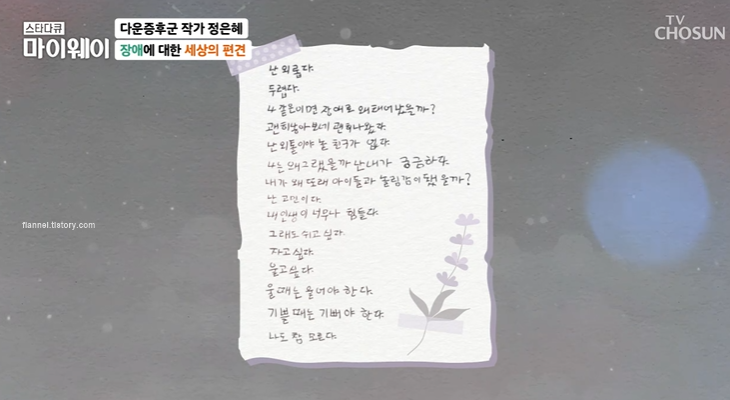 스타다큐
마이웨이
다운증후군 작가 정은혜
장애에 대한 세상의 편견
TV
CHOSUN
난 외롭다.
두렵다.
같은 이면 장애로 왜 태어났을까?
난 외톨이야 놀 친구가 없다.
왜 그랬을까 난 내가 궁금하다.
내가 왜 또래 아이들과 놀림감이 됐을까?
난 고민이다.
내 인생이 너무나 힘들다.
그래도 쉬고 싶다.
자고 싶다.
울고 싶다.
울 때는 울어야 한다.
기쁠 때는 기뻐야 한다.
나도 참 모른다.
flannel.tistory.com